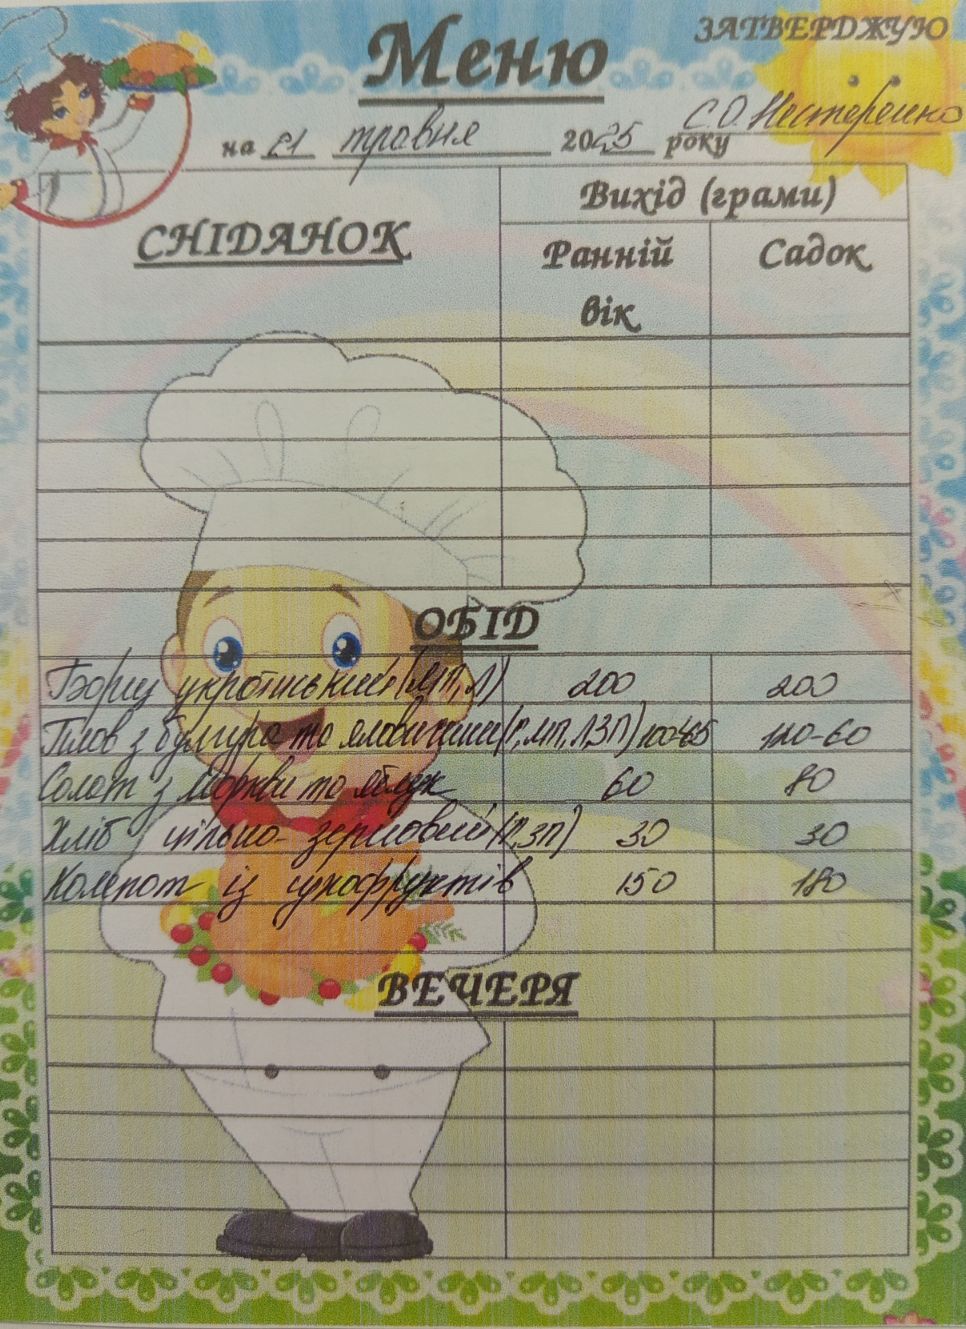 Меню
ЗАТВЕРДЖУЮ
С.О. Нестеренко
на 21 травня 2025 року
СНІДАНОК
Вихід (грами)
Ранній вік
Садок
ОБІД
Борщ український (МП, Л) 200 200
Плов з булгура та яловичини (Г, МП, Л, ЗП) 120-60
Салат з моркви та яблук 60 80
Хліб цільно-зерновий (Г, ЗП) 30 30
Компот із сухофруктів 150 180
ВЕЧЕРЯ